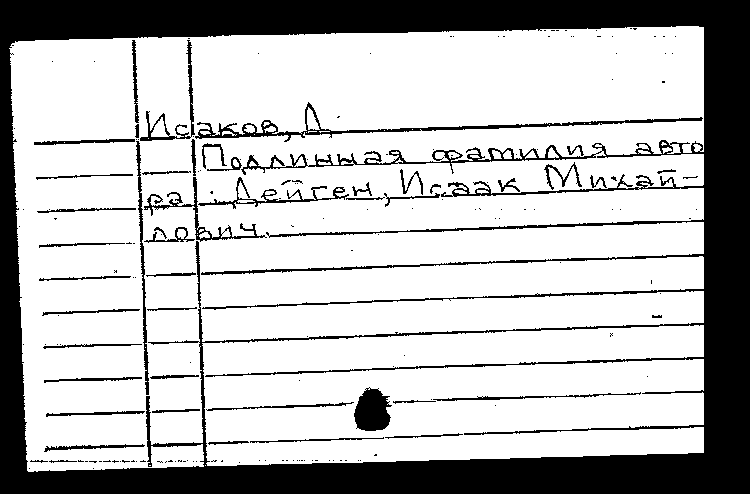 Исаков, Д.
Подлинная фамилия авто
ра: Дейген, Исаак Михай-
лович.